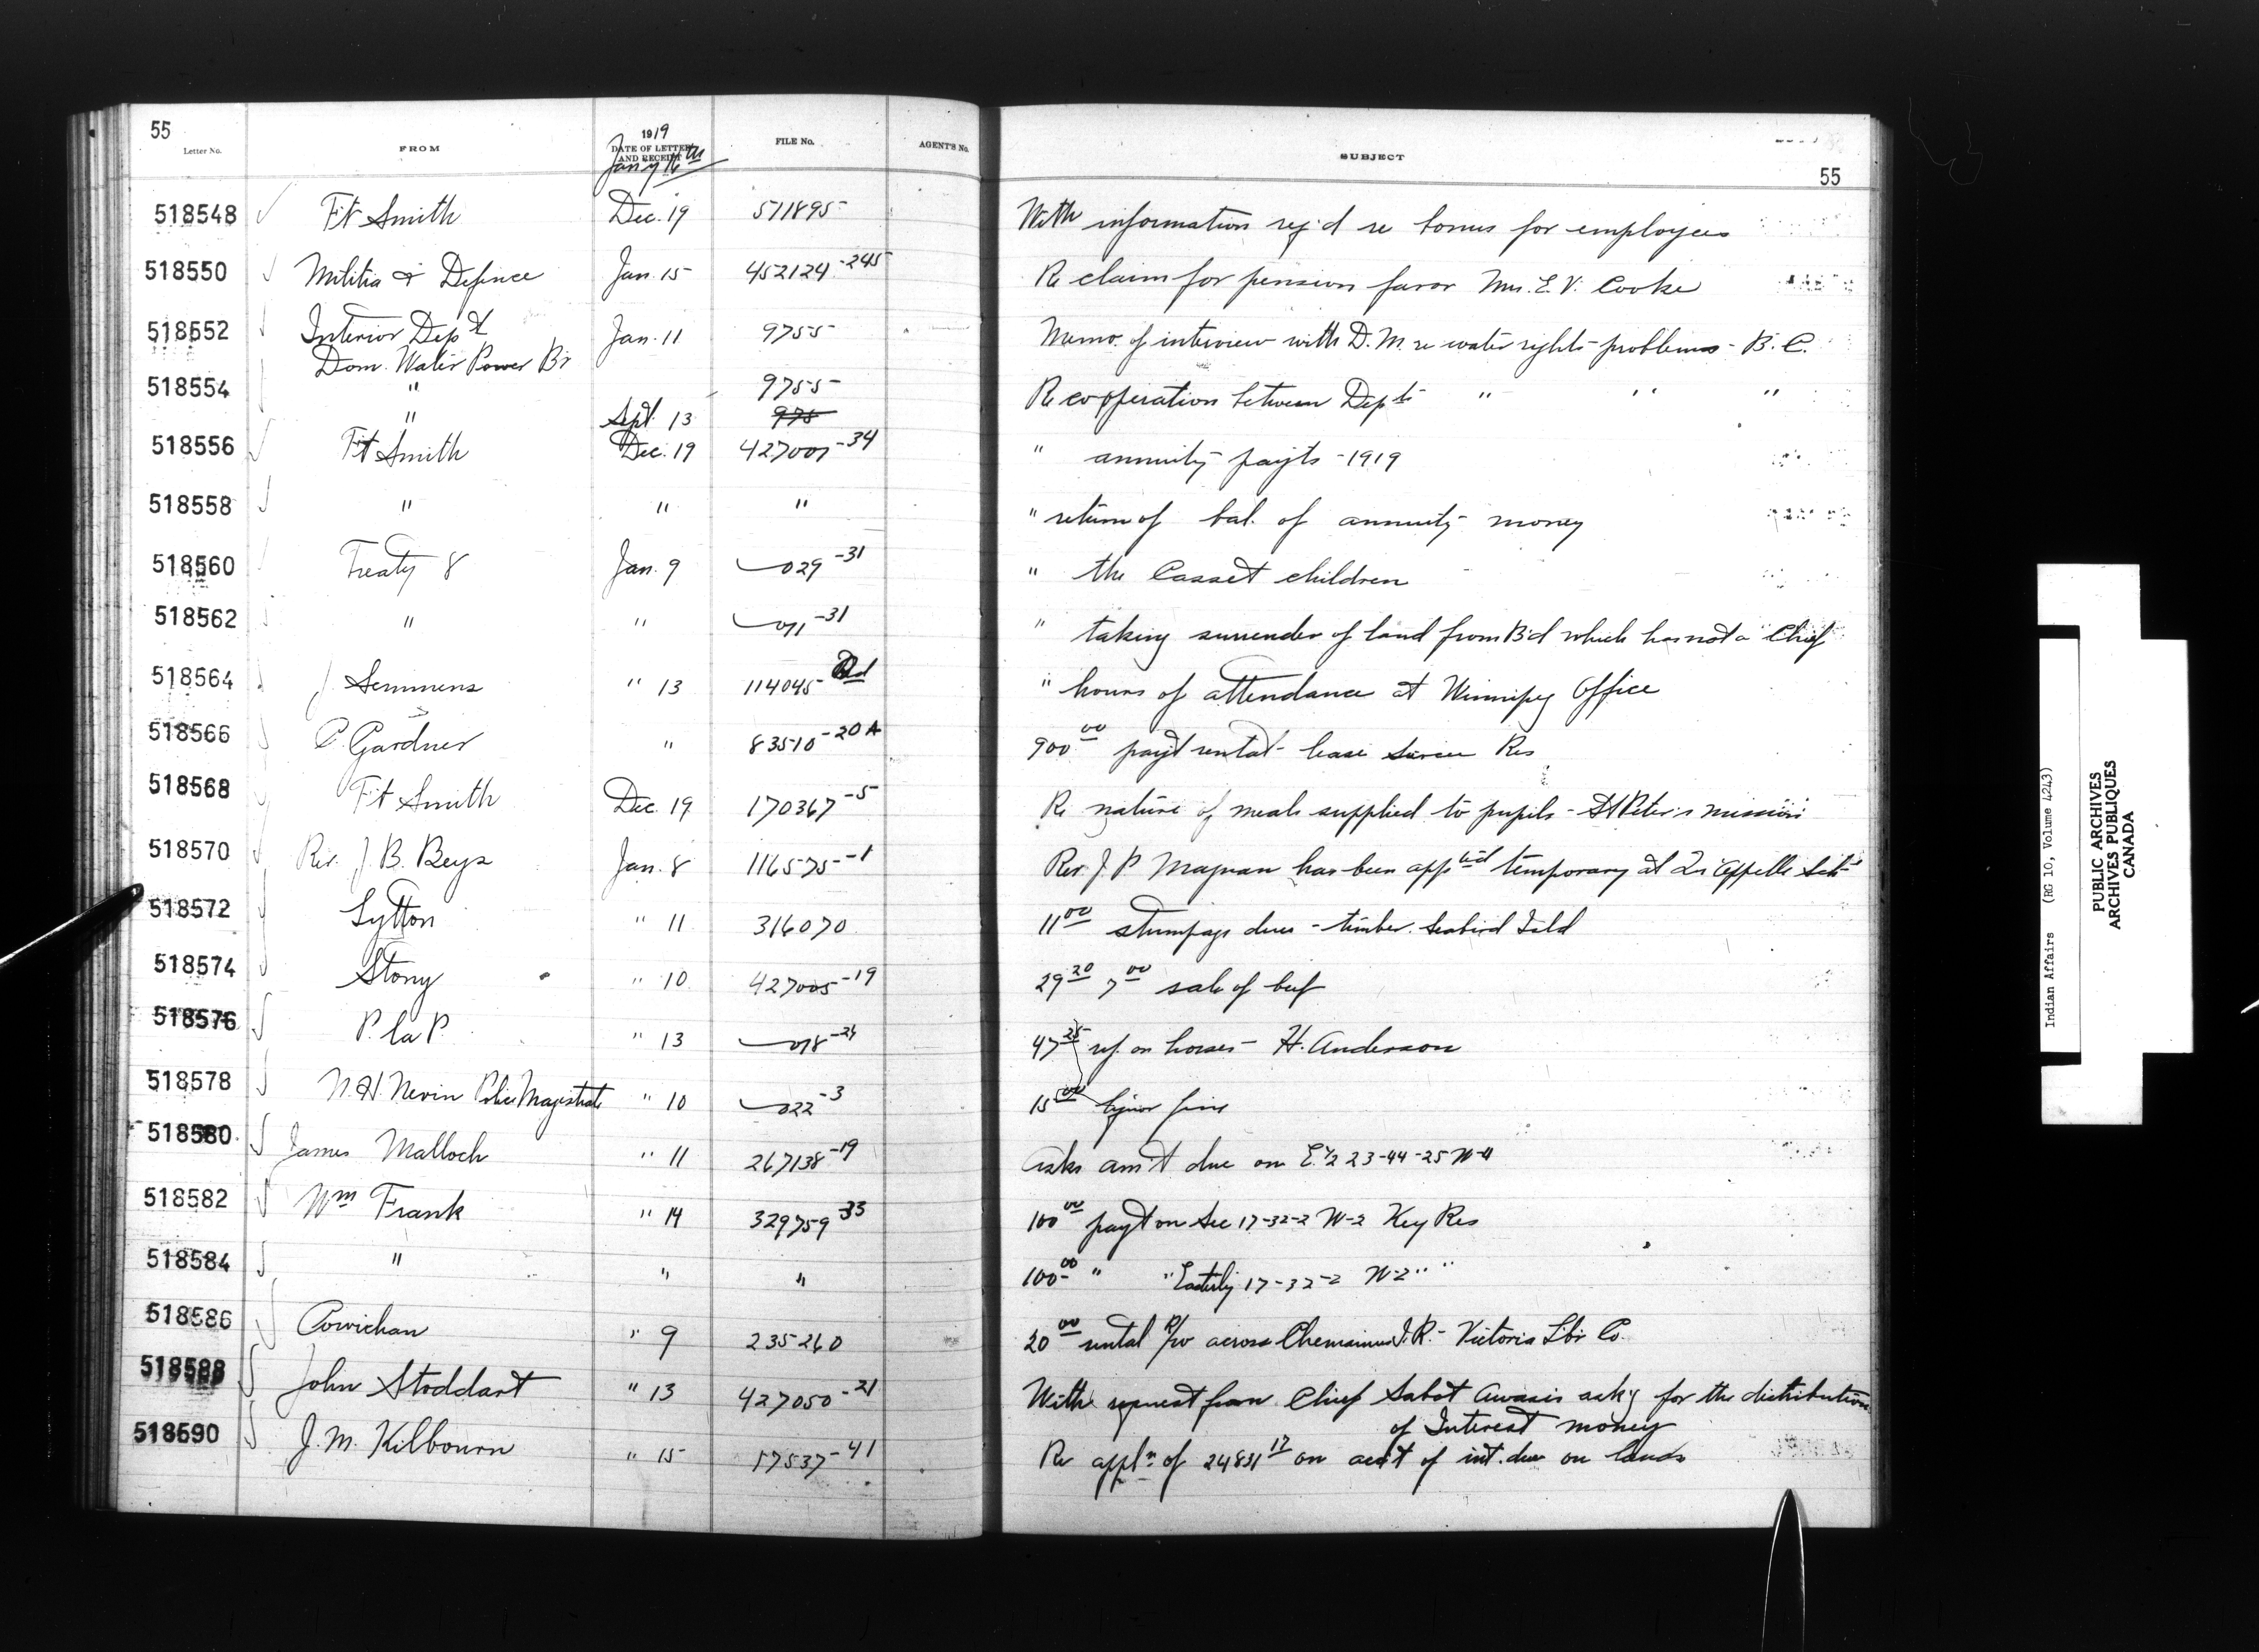 55
Letter No. FROM 1919 DATE OF LETTER AND RECEIPT FILE No. AGENT'S No. SUBJECT
Jany 16th
55
518548 Ft Smith Dec. 19 511895 With information req'd re bonus for employees
518550 Militia & Defence Jan. 15 452124-245 Re claim for pension favor Mrs. E. V. Cooke
518552 Interior Dept Jan. 11 9755 Memo. of interview with D. M. re water rights problems - B. C.
Dom. Water Power Br
518554 " 9755 Re cooperation between Depts " " "
" Sept. 13 975
518556 Ft Smith Dec. 19 427001-34 " annuity payts - 1919
518558 " " " " return of bal. of annuity money
518560 Treaty 8 Jan. 9 029-31 " the Casset children
518562 " " 011-31 " taking surrender of land from B'd which has not a Chief
518564 J. Semmens " 13 114045 " hours of attendance at Winnipeg Office
518566 C. Gardner " 83510-20A 900.00 payt rental - lease Res
518568 Ft Smith Dec. 19 170367-5 Re nature of meals supplied to pupils - St Peter's mission
518570 Rev. J. B. Beys Jan. 8 116575-1 Rev. J. P. Magnan has been app'td temporary at Qu'Appelle Sch
518572 Lytton " 11 316070 11.00 stumpage dues - timber. Seabird Isld
518574 Stony " 10 427005-19 29.20 7.00 sale of beef
518576 P. la P. " 13 018-24 47.25 ref. on horses - H. Anderson
518578 N. H. Nevin Police Magistrate " 10 022-3 15.00 liquor fine
518580 James Malloch " 11 267138-19 Asks am't due on E. 1/2 23-44-25 W-4
518582 Wm Frank " 14 329759-33 100.00 payt on Sec 17-32-2 W-2 Key Res
518584 " " " 100.00 " " Easterly 17-32-2 W-2 " "
518586 Cowichan " 9 235260 20.00 rental R/w across Chemainus I. R. - Victoria Lbr Co.
518588 John Stoddart " 13 427050-21 With request from Chief Sabot Awasis ask'g for the distribution
of Interest money
518590 J. M. Kilbourn " 15 57537-41 Re appl'n of 24831.17 on acct of int. due on lands
Indian Affairs (RG 10, Volume 4243)
PUBLIC ARCHIVES
ARCHIVES PUBLIQUES
CANADA